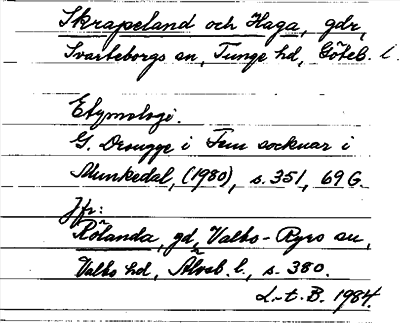 Skrapeland och Haga, gdr,
Svarteborgs sn, Tunge hd, Göteb. l.
Etymologi.
G. Drougge i Fem socknar i
Munkedal, (1980), s. 351, 69 G.
Jfr:
Rölanda, gd, Valbo-Ryrs sn,
Valbo hd, Älvsb. l., s. 380.
L-t. B. 1984.